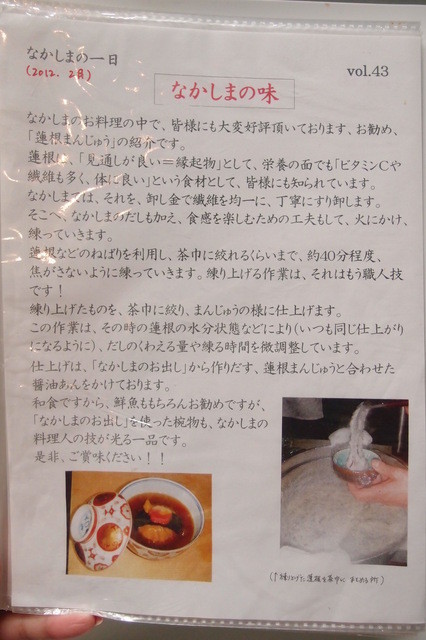 なかしまの一日
(2012. 2月)
vol.43
なかしまの味
なかしまのお料理の中で、皆様にも大変好評頂いております、お勧め、
「蓮根まんじゅう」の紹介です。
蓮根は、「見通しが良い＝縁起物」として、栄養の面でも「ビタミンCや
繊維も多く、体に良い」という食材として、皆様にも知られています。
なかしまでは、それを、卸し金で繊維を均一に、丁寧にすり卸します。
そこへ、なかしまのだしも加え、食感を楽しむための工夫もして、火にかけ、
練っていきます。
蓮根などのねばりを利用し、茶巾に絞れるくらいまで、約40分程度、
焦がさないように練っていきます。練り上げる作業は、それはもう職人技
です！
練り上げたものを、茶巾に絞り、まんじゅうの様に仕上げます。
この作業は、その時の蓮根の水分状態などにより(いつも同じ仕上がり
になるように)、だしのくわえる量や練る時間を微調整しています。
仕上げは、「なかしまのお出し」から作りだす、蓮根まんじゅうと合わせた
醤油あんをかけております。
和食ですから、鮮魚ももちろんお勧めですが、
「なかしまのお出し」を使った椀物も、なかしまの
料理人の技が光る一品です。
是非、ご賞味ください！！
(↑練り上げた蓮根を茶巾に まとめる所)